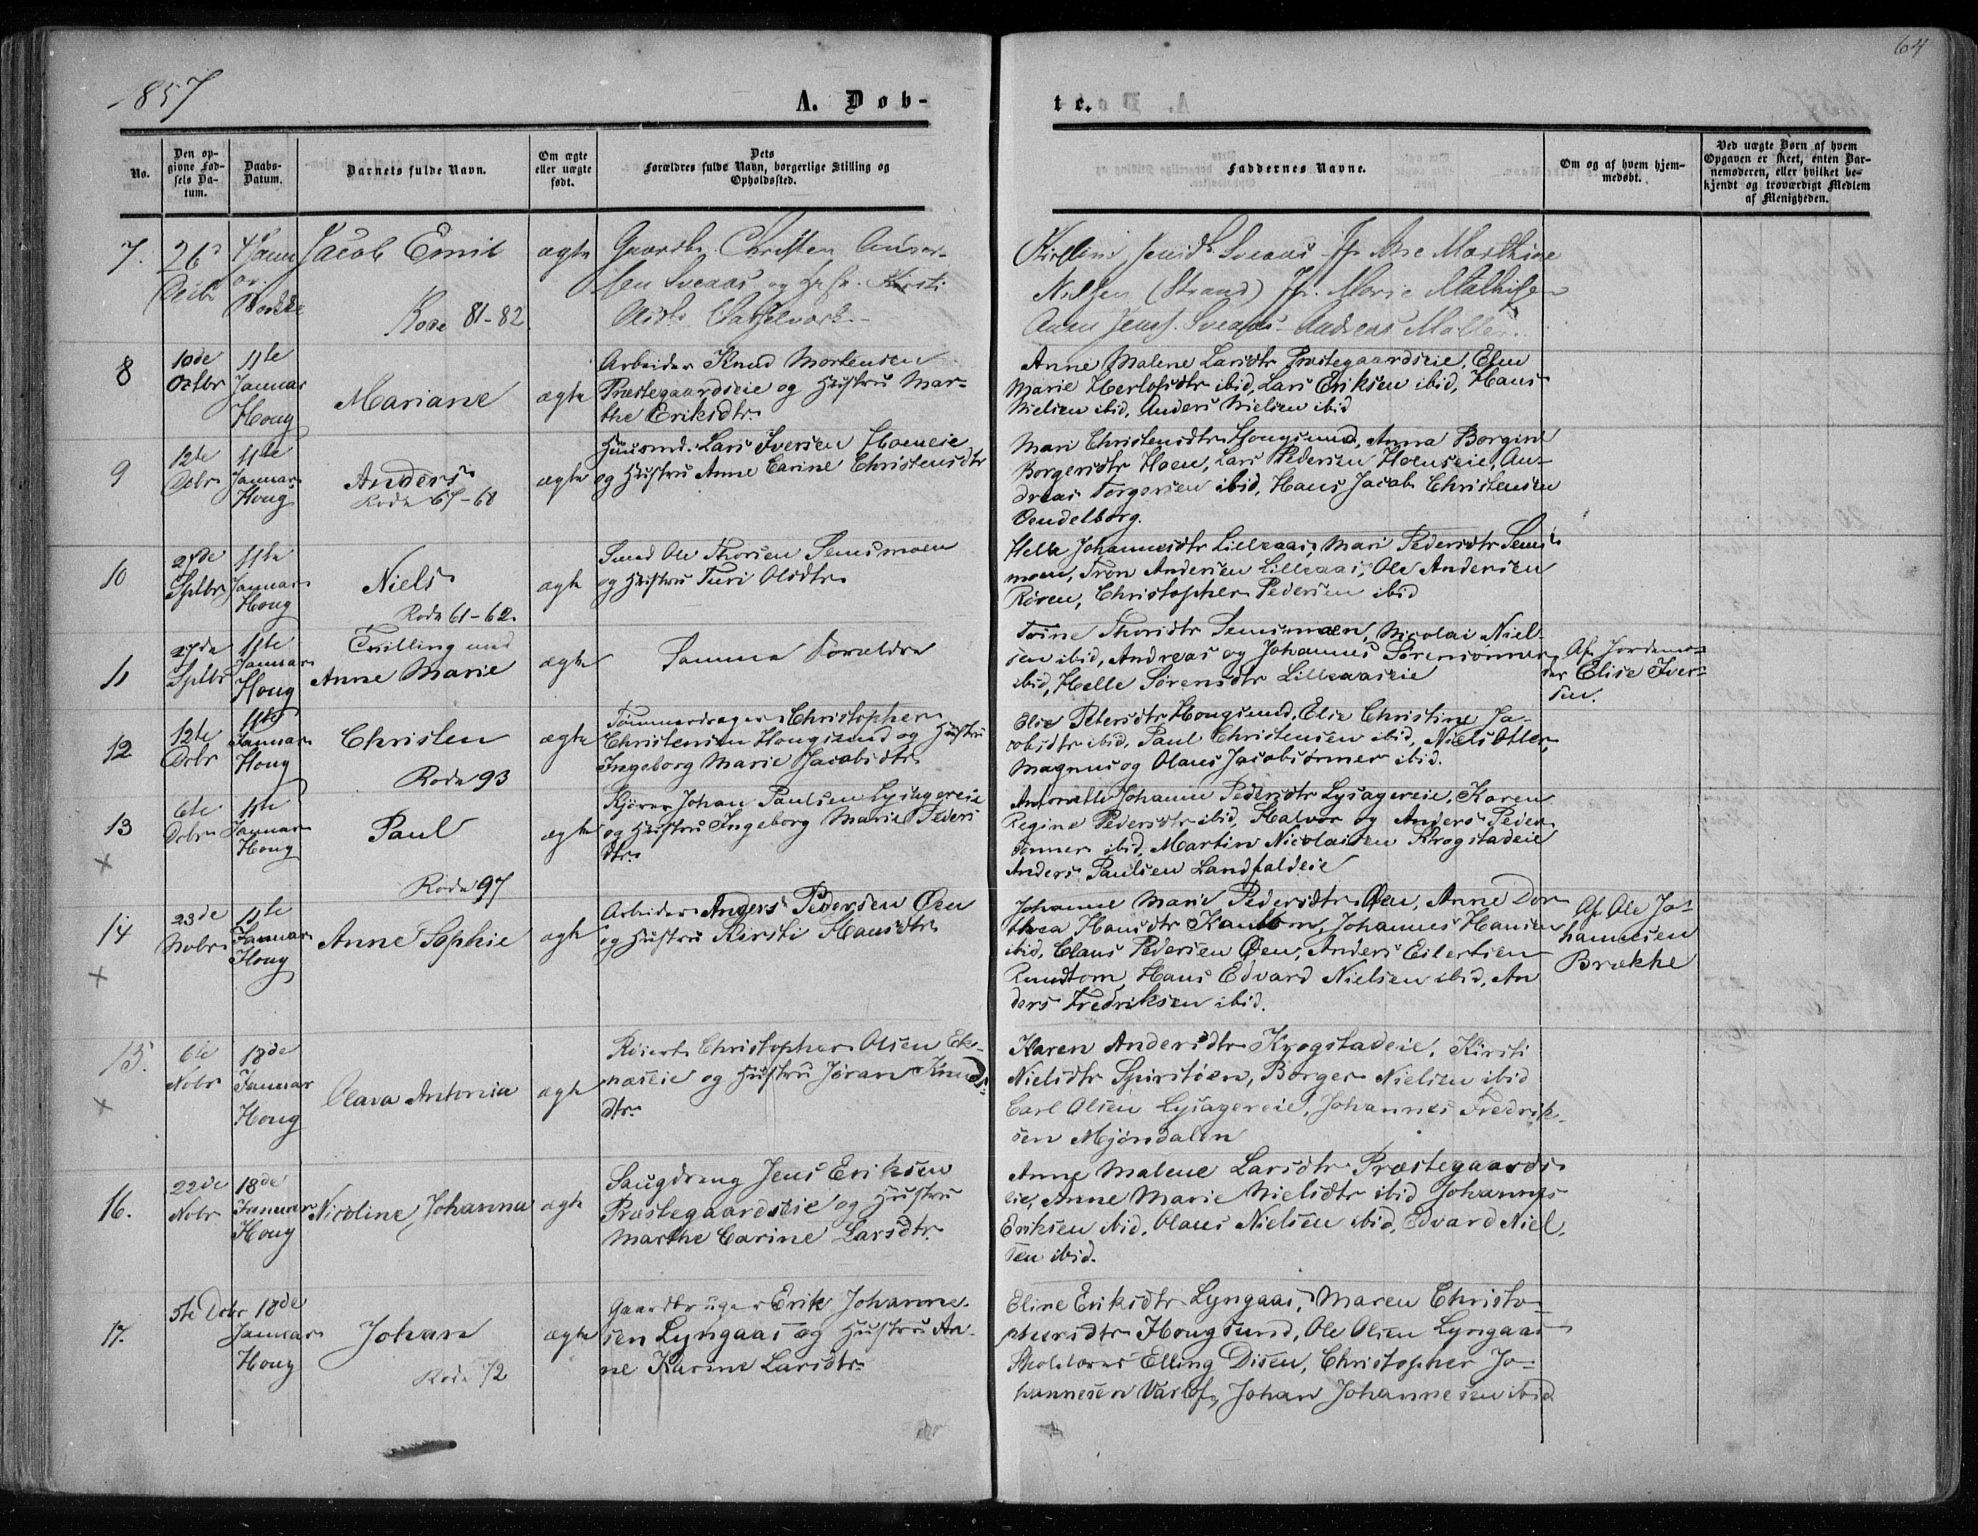 1857
A. Døb-
No.
Den op-
givne Fød-
sels Da-
tum.
Daabs-
Datum.
Barnets fulde Navn.
Om ægte
eller uægte
født.
Dets
Forældres fulde Navn, borgerlige Stilling og
Opholdssted.
7.
Jacob Emil
Rode 81-82
ægte
Gaardbr. Christen Anders-
sen Sveaas og
8
10de
Octbr
11te
Januar
Houg
Mariane
ægte
Arbeider Knud Mortensen
Præstegaardseie og Hustru Mar-
the Eriksdtr
9
12te
Decbr
11te
Januar
Houg
Anders
Rode 67-68
ægte
Huusmd. Lars Iversen Hoeneie
og Hustru Anne Carine Christensdtr
10
27de
Sptbr
11te
Januar
Houg
Niels
Rode 61-62.
ægte
Smed Ole Thorsen Semsmoen
og Hustru Turi Olsdtr
11
27de
Sptbr
11te
Januar
Houg
Tvilling med
Anne Marie
ægte
Samme Forældre
12
12te
Decbr
11te
Januar
Houg
Christen
Rode 93
ægte
Tømmerdrager Christopher
Christensen Hougsund og Hustru
Ingeborg Marie Jacobsdtr
13
6te
Decbr
11te
Januar
Houg
Paul
Rode 97
ægte
Kjører Johan Paulsen Lysagereie
og Hustru Ingeborg Marie Peders
dtr
14
23de
Novbr
11te
Januar
Houg
Anne Sophie
ægte
Arbeider Anders Pedersen Øen
og Hustru Kirsti Hansdtr
15.
6te
Novbr
18de
Januar
Houg
Olava Antonia
ægte
Christopher Olsen Ek-
næseie og Hustru Jøran Knuds
dtr
16.
22de
Novbr
18de
Januar
Houg
Nicoline Johanna
ægte
Saugdreng Jens Eriksen
Præstegaardseie og Hustru
Marthe Carine Larsdtr
17.
5te Decbr
18de
Januar
Houg
Johan
Rode 72
ægte
Gaardbruger Erik Johanne-
sen Lyngaas og Hustru An-
ne Karine Larsdtr
64
te.
Faddernes Navne.
Om og af hvem hjem-
medøbt.
Ved uægte Børn af hvem
Opgaven er skeet, enten Bar-
nemoderen, eller hvilket be-
kjendt og troværdigt Medlem
af Menigheden.
Sveaas Marthine
Nilsen (Strand) Marie Mathilde
Sveaas Andreas Møller
Anne Malene Larsdtr Præstegaardseie, Elen
Marie Herlofsdtr ibid, Lars Eriksen ibid, Hans
Nielsen ibid, Anders Nielsen ibid
Mari Christensdtr Hougsund, Anna Borgine
Borgersdtr Hoen, Lars Pedersen Hoenseie, An-
dreas Torgersen ibid, Hans Jacob Christensen
Vendelborg.
Helle Johannesdtr Lilleaas, Mari Pedersdtr Sems-
moen, Tron Andersen Lilleaas, Ole Andersen
Røren, Christopher Pedersen ibid
Trine Thorsdtr Semsmoen, Nicolai Niel-
sen ibid, Andreas og Johannes Sørensønner
ibid, Helle Sørensdtr Lilleaaseie
Af Jordemo-
der Elise Iver-
sen.
Elie Petersdtr Hougsund, Elie Christine Ja-
cobsdtr ibid, Paul Christensen ibid, Niels Otter,
Magnus og Olaus Jacobsønner ibid.
Antonette Johanne Pedersdtr Lysagereie, Karen
Regine Pedersdtr ibid, Halvor og Anders Peder-
sønner ibid, Martin Nicolaisen Krogstadeie
Anders Paulsen Landfaldeie
Johanne Marie Pedersdtr Øen, Anne Dor-
thea Hansdtr Johannes Hansen
ibid, Claus Pedersen Øen, Anders Eilertsen
Rundtom, Hans Edvard Nielsen ibid, An
ders Fredriksen ibid.
Af Ole Jo-
hannesen
Brække
Karen Andersdtr Krogstadeie, Kirsti
Nielsdtr Spiritøen, Borger Nielsen ibid
Carl Olsen Lysagereie, Johannes Fredrik-
sen Mjøndalen
Anne Malene Larsdtr Præstegaards-
eie, Anne Marie Nielsdtr ibid Johannes
Eriksen ibid, Olaus Nielsen ibid, Edvard Niel-
sen ibid.
Eline Eriksdtr Lyngaas, Maren Christo-
phersdtr Hougsund, Ole Olsen Lyngaas
Skolelærer Elling Disen, Christopher Jo-
hannesen Varlo, Johan Johannesen ibid